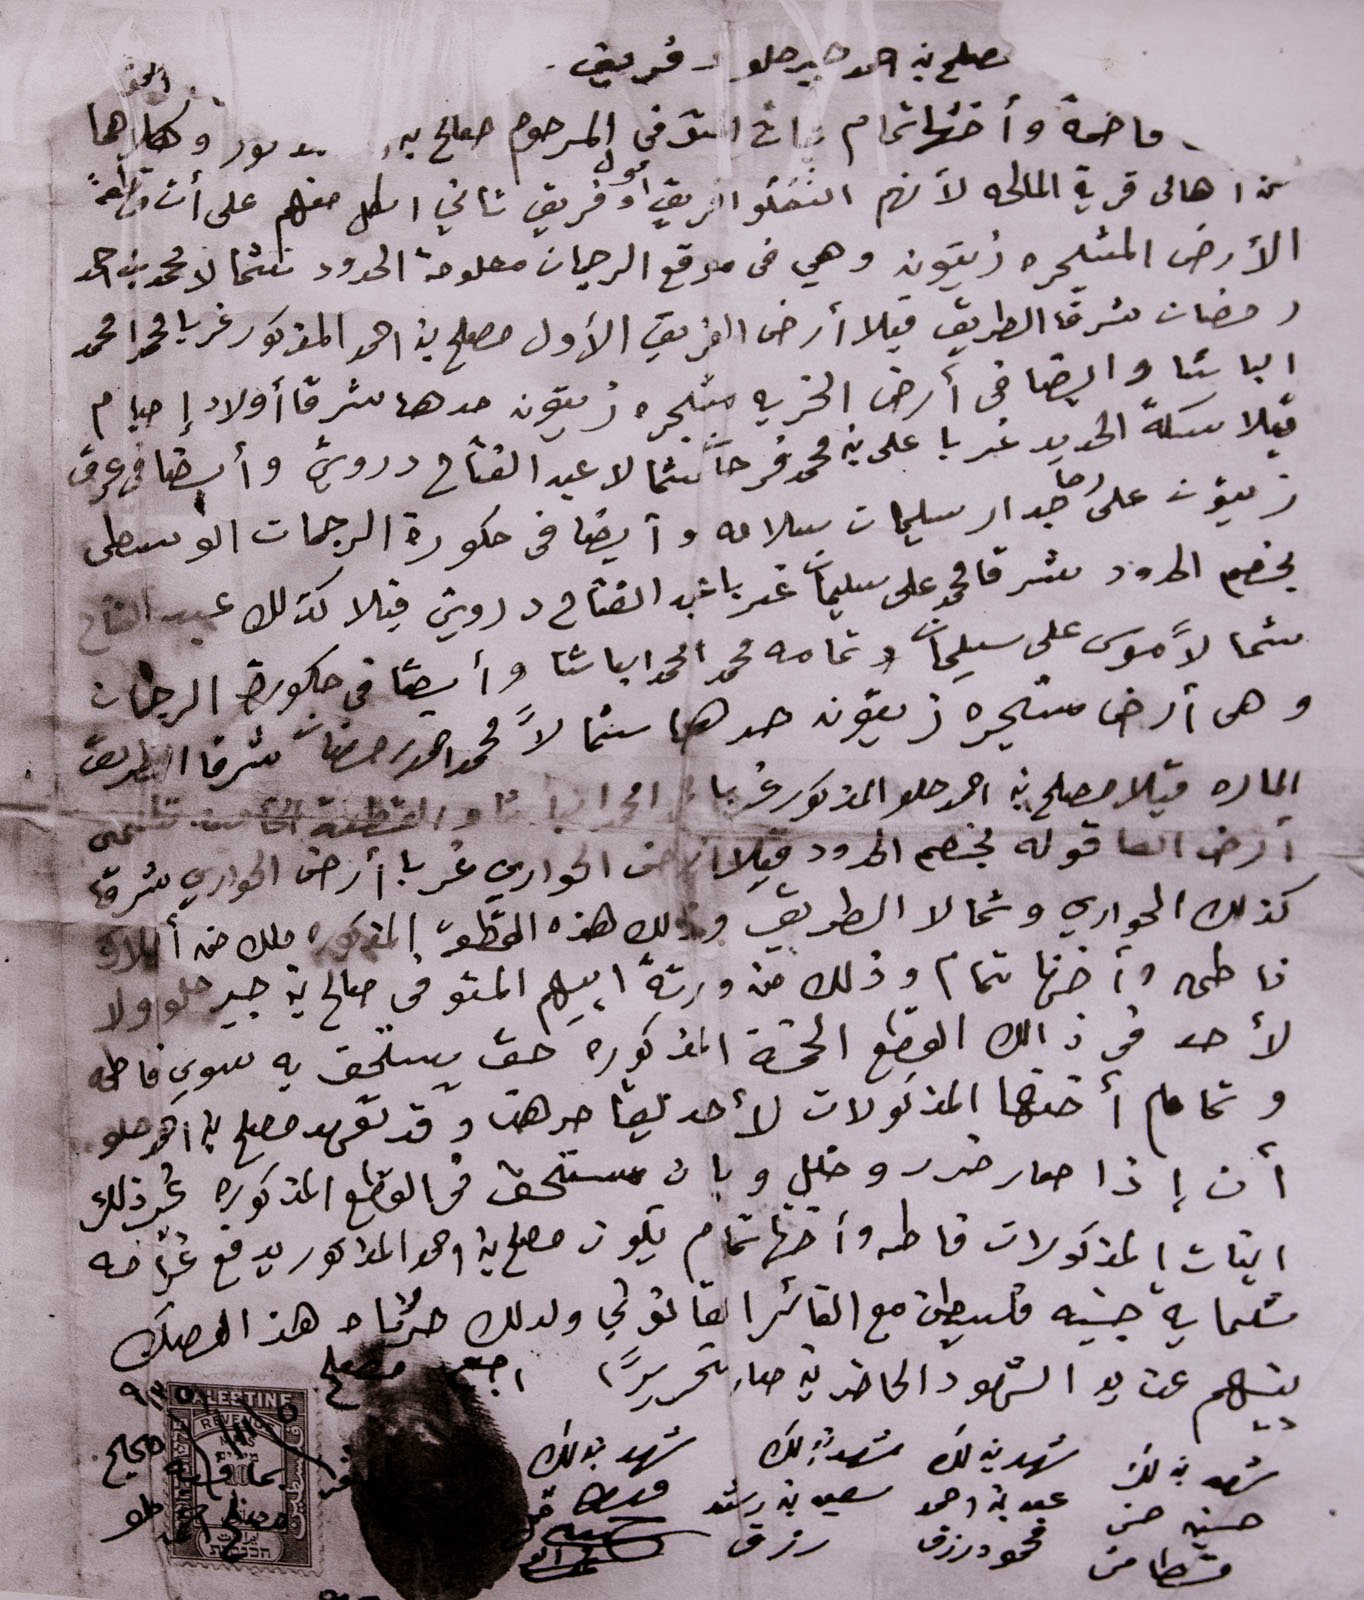 مصلح بن احمد جبر حلو فريق
فاطمة وأختها تمام المتوفي المرحوم صالح بن وكلاهما
من اهالي قرية المالحه لأنهم اتفقو افريق أول وفريق ثاني الكل منهم على أن
الأرض المشجره زيتون وهي في موقع الرجمان معلومة الحدود شمالا محمد بن احمد
رمضان شرقا الطريق قبلا أرض الفريق الأول مصلح بن احمد المذكور غربا محمد
الباشا وايضا في أرض الخربه مشجره زيتون حدها شرقا أولاد إ صيام
قبلا سكة الحديد غربا على بن محمد فرحان شمالا عبد الفتاح درويش وأيضا في عرق
زيتون على جدار سليمان سلامه وأيضا في حكورة الرجمات الوسطى
يخصم الحدود شرقا محمد على سليمان غربا عبد الفتاح درويش قبلا كذلك عبد الفتاح
شمالاً موسى على سليمان وتمامه محمد احمد الباشا وأيضا في حكورة الرجمان
وهي أرض مشجره زيتون حدها شمالاً محمد احمد رمضان شرقا الطريق
الماره قبلا مصلح بن احمد حلو المذكور غربا والقطعة
أرض العاقوله يخصم الحدود قبلا أرض الحواري غربا أرض الحواري شرقا
كذلك الحواري وشمالا الطريق وذلك هذه القطع المذكوره ملك من أملاك
فاطمه وأختها تمام وذلك من ورثة ابيهم المتوفي صالح بن جبر حلو ولا
لأحد في ذالك القطع الخمسة المذكوره حق يستحق به سوى فاطمه
وتمام أختها المذكولات لأحد وقد تعهد مصلح بن احمد حلو
أن إذا صار ضرر وخلل وبان مستحق في القطع المذكوره غير ذلك
البنات المذكورات فاطمه وأختها تمام يكون مصلح بن احمد المذكور يدفع غرامه
ثلثماية جنيه فلسطين مع الفائز القانوني ولذلك حررنا هذا الصك
بينهم عن يد الشهود الحاضرين صار تحريرًا مصلح
شهد بذلك شهد بذلك شهد بذلك شهد بذلك
حسين حسن عبد بن احمد سعيد بن رشيد
محمود رزق رزق
PALESTINE
REVENUE
بما فيه صحيح
مصلح احمد حلو